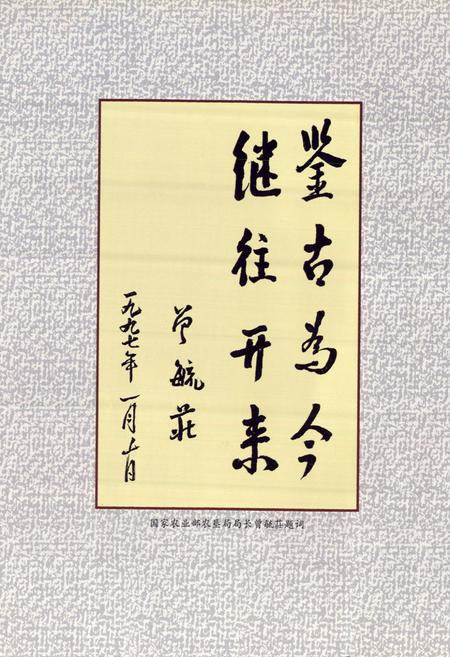 鉴古为今
继往开来
曾毓莊
一九九七年一月十日
国家农业部农垦局局长曾毓莊题词